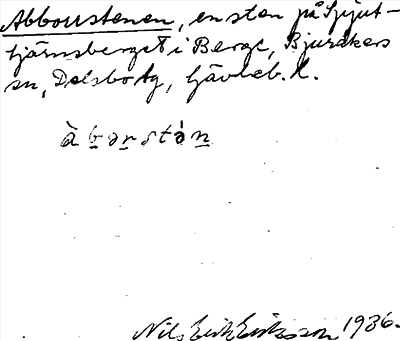 Abborrstenen, en sten på Spjut-
tjärnsberget i Berge, Bjuråkers
sn, Delsbo tg, Gävleb. l.
àbǝrstǻn
Nils Erik Eriksson 1936.